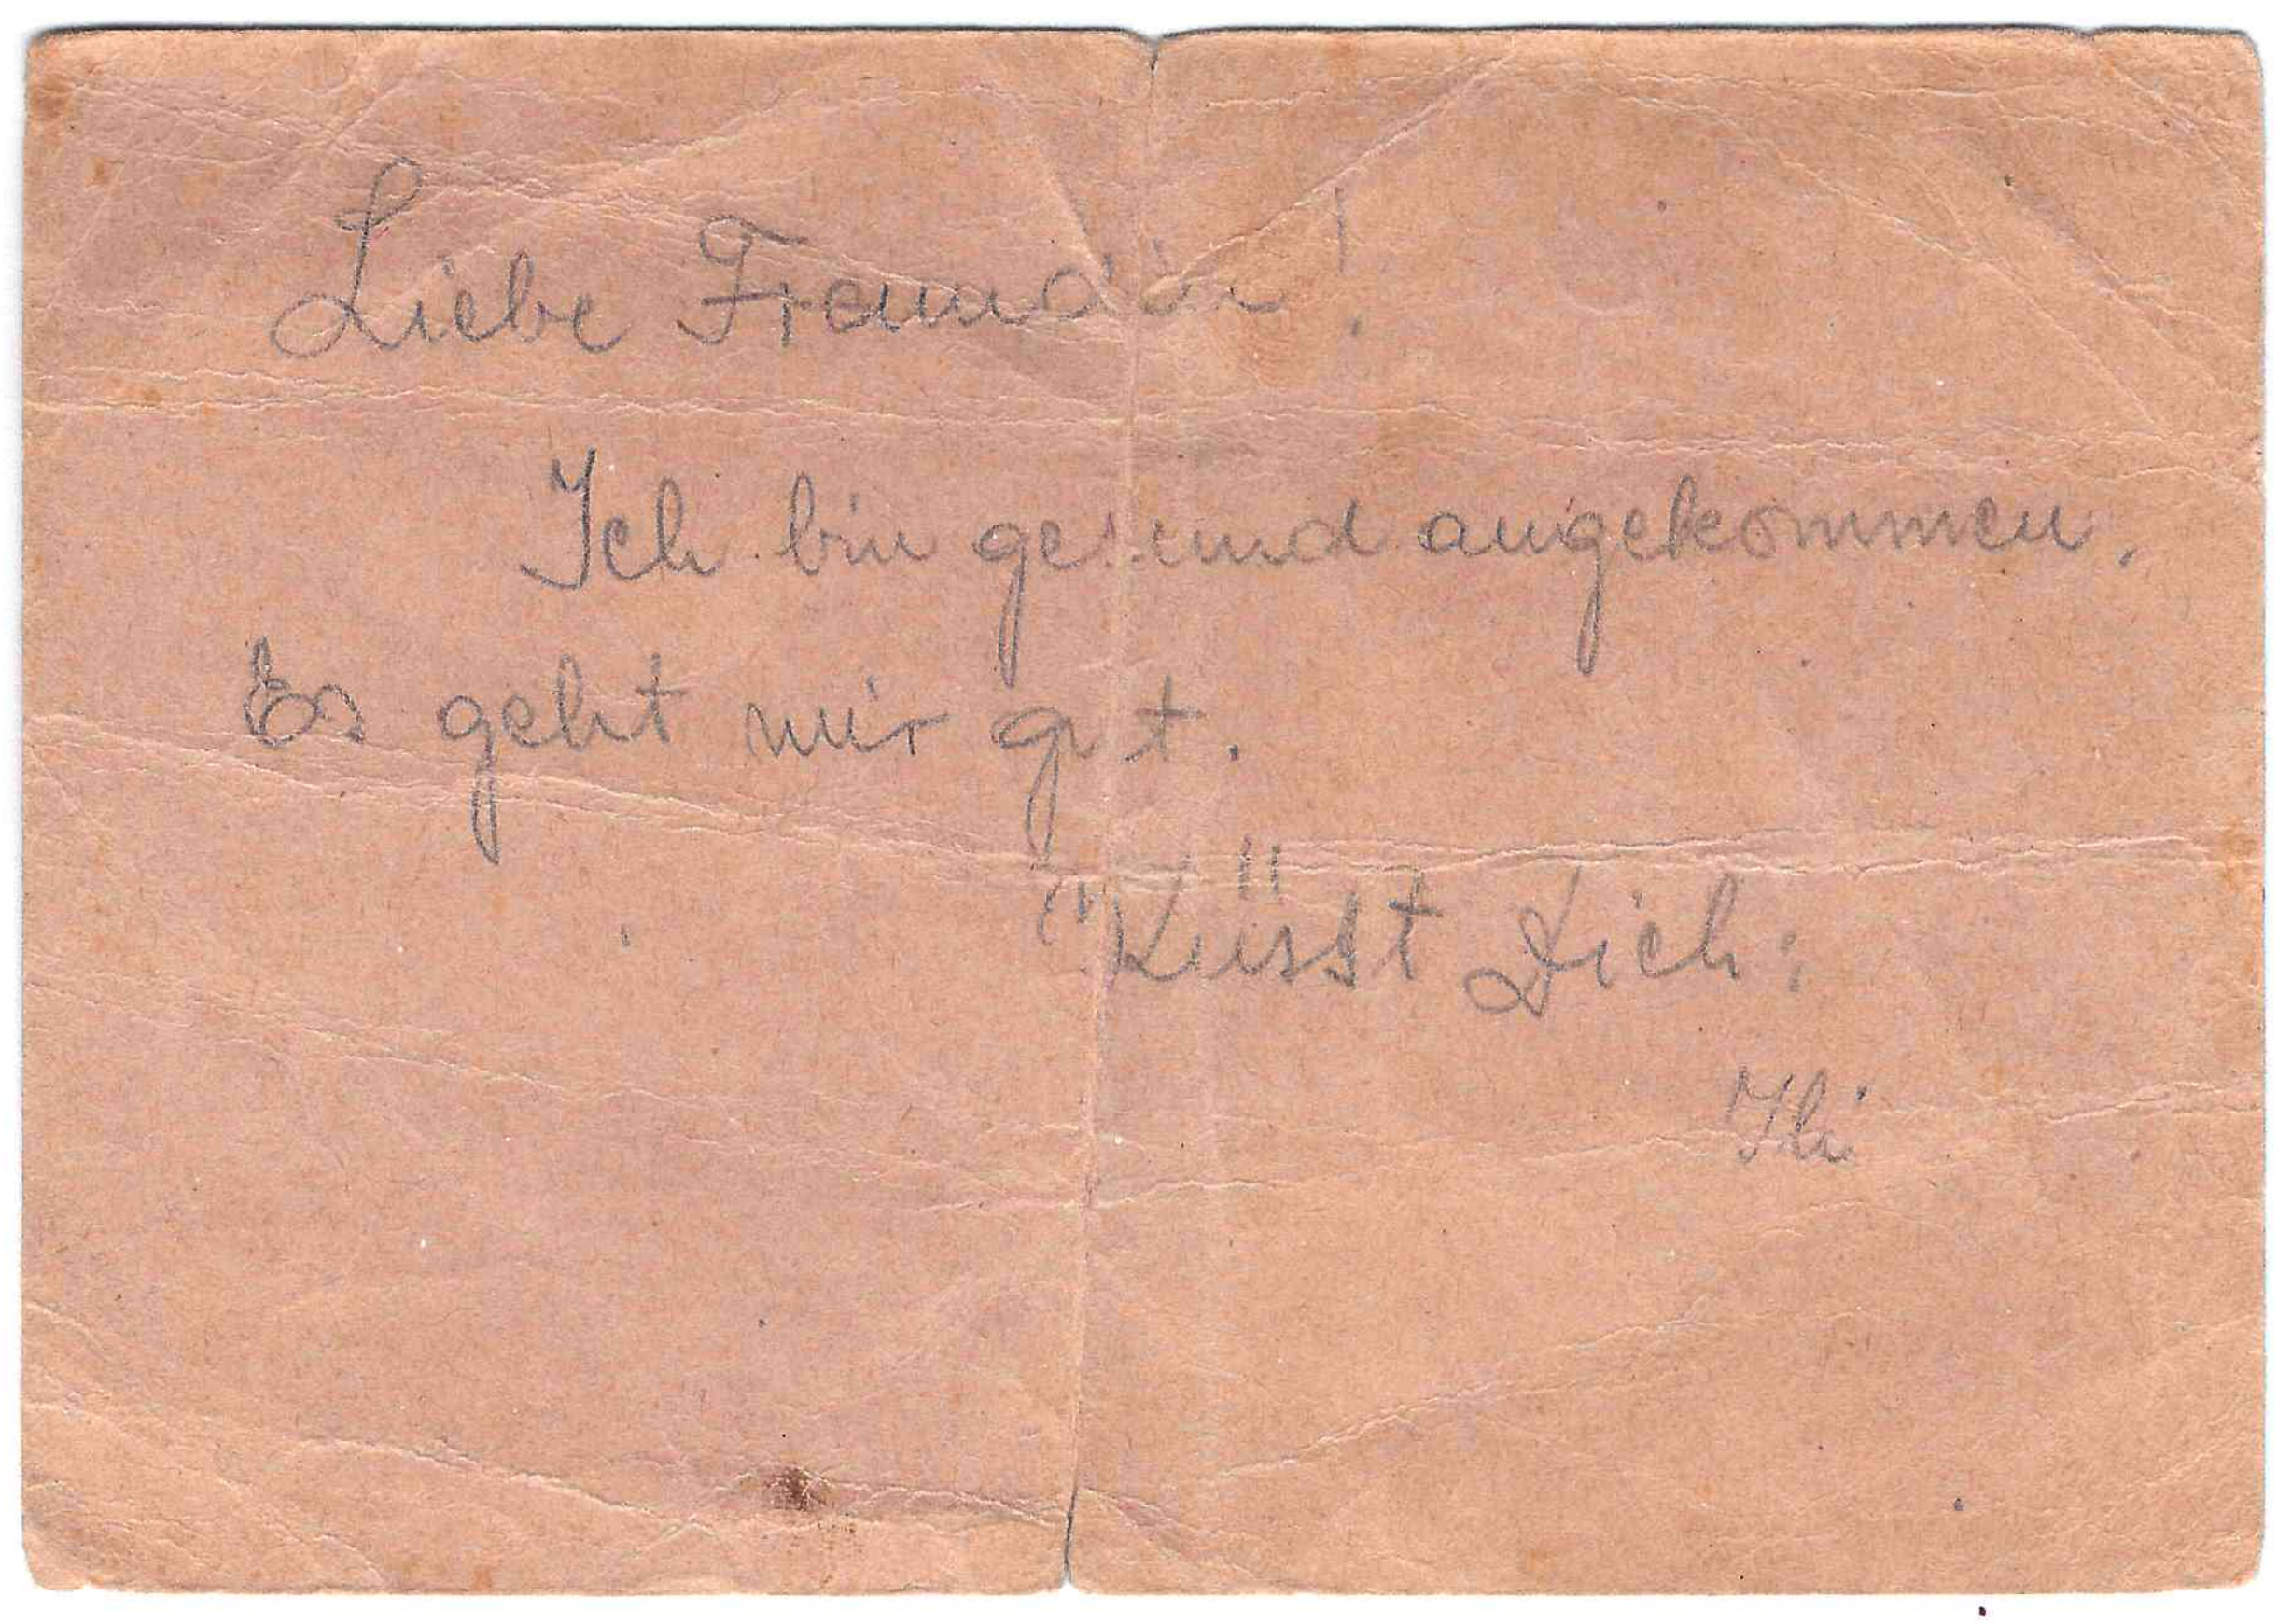 Liebe Freundin!
Ich bin gesund angekommen.
Es geht mir gut.
Küsst Dich:
Ili